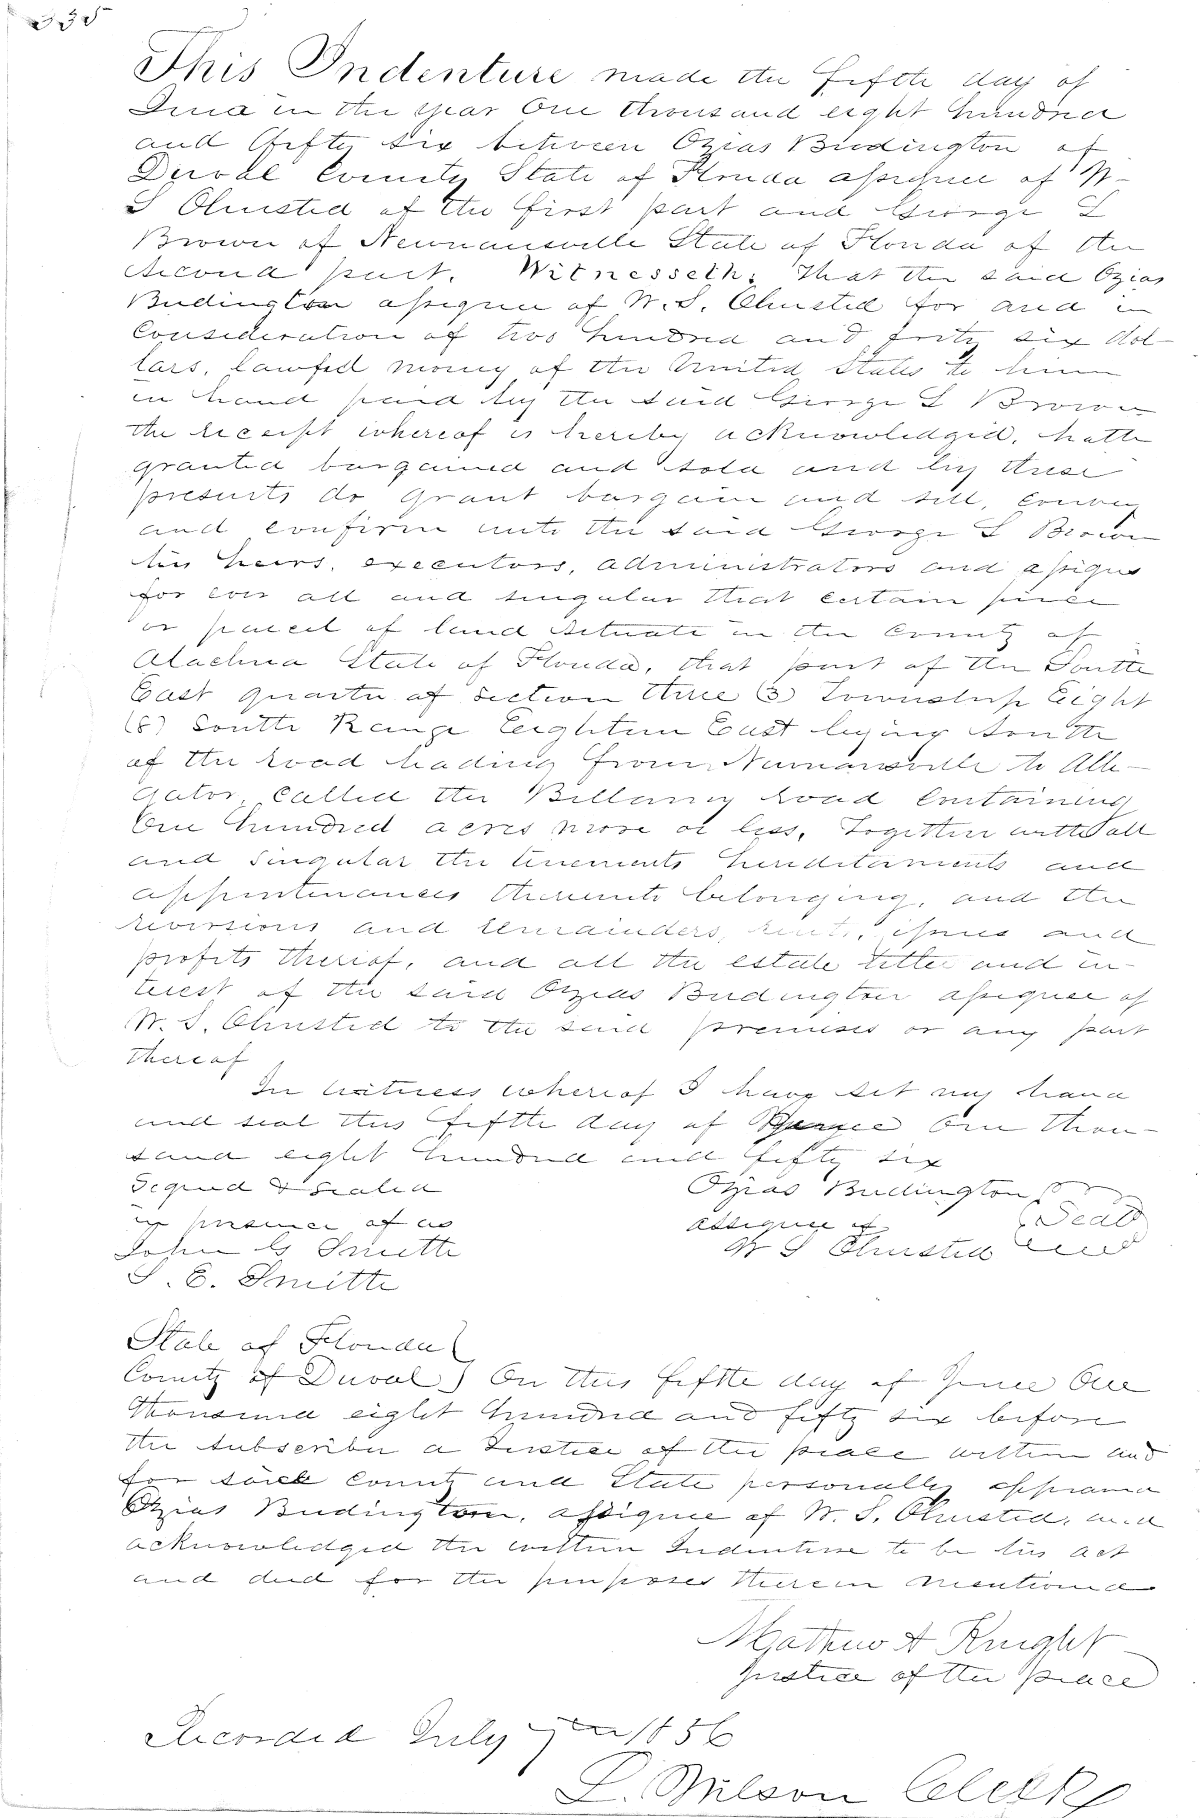 335
This Indenture made the fifth day of
June in the year One thousand eight hundred
and fifty six between Ozias Budington of
Duval County State of Florida assignee of W.
S Olmsted of the first part and George L
Brown of Newnansville State of Florida of the
second part. Witnesseth; That the said Ozias
Budington assignee of W. S. Olmsted for and in
consideration of two hundred and forty six dol-
lars, lawful money of the United States to him
in hand paid by the said George L Brown
the receipt whereof is hereby acknowledged, hath
granted bargained and sold and by these
presents do grant bargain and sell, convey
and confirm unto the said George L Brown
his heirs, executors, administrators and assigns
for ever all and singular that certain piece
or parcel of land situate in the County of
Alachua State of Florida, that part of the South
East quarter of section three (3) Township Eight
(8) South Range Eighteen East lying South
of the road leading from Newnansville to Alle-
gator, called the Bellamy road containing
One hundred acres more or less, together with all
and singular the tenements hereditaments and
appurtenances thereunto belonging, and the
reversions and remainders, rents, issues and
profits thereof, and all the estate tittle and in-
terest of the said Ozias Budington assignee of
W. S. Olmsted to the said premises or any part
thereof
In witness whereof I have set my hand
and seal this fifth day of June One thou-
sand eight hundred and fifty six
Signed & sealed
in presence of us
John G Smith
S. E. Smith
Ozias Budington
assignee of
W S Olmsted
(Seal)
State of Florida
County of Duval } On this fifth day of June One
thousand eight hundred and fifty six before
the subscriber a Justice of the peace within and
for said county and State personally appeared
Ozias Budington, assignee of W. S. Olmsted, and
acknowledged the within Indenture to be his act
and deed for the purposes therein mentioned
Mathew A Knight
Justice of the peace
Recorded July 7th 1856
L. Wilson Clerk